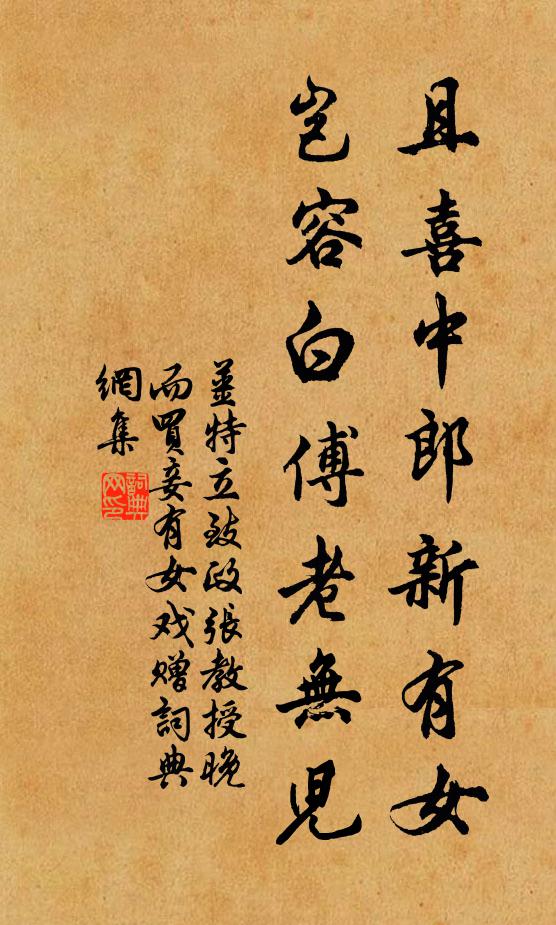 且喜中郎新有女
岂容白傅老無兒
姜特立致政張教授晚
而買妾有女戏赠詞典
網集
詞典網印